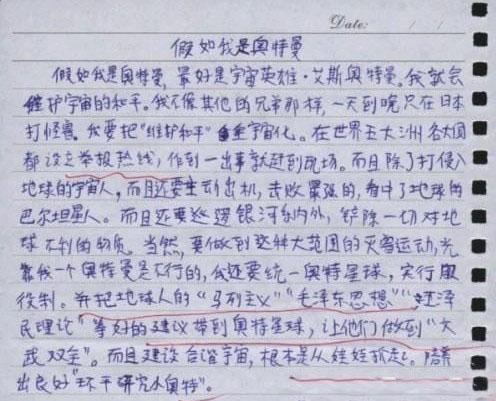 Date: / /
假如我是奥特曼
假如我是奥特曼,最好是宇宙英雄·艾斯奥特曼。我就会
维护宇宙的和平。我不像其他的兄弟那样,一天到晚只在日本
打怪兽。我要把“维护和平”宇宙化。在世界五大洲各大国
都设立举报热线,作到一出事就赶到现场。而且除了打侵入
地球的宇宙人,而且还要主动出机,击败最强的,看中了地球的
巴尔坦星人。而且还要巡逻银河系内外,铲除一切对地
球不利的物质。当然,要做到这种大范围的灭害运动,光
靠我一个奥特曼是不行的,我还要统一奥特星球,实行服
役制。并把地球人的“马列主义”“毛泽东思想”“泽
民理论”等好的建议带到奥特星球,让他们做到“文
武双全”。而且建设合谐宇宙,根本是从娃娃抓起。培养
出良好“环干研究小奥特”。